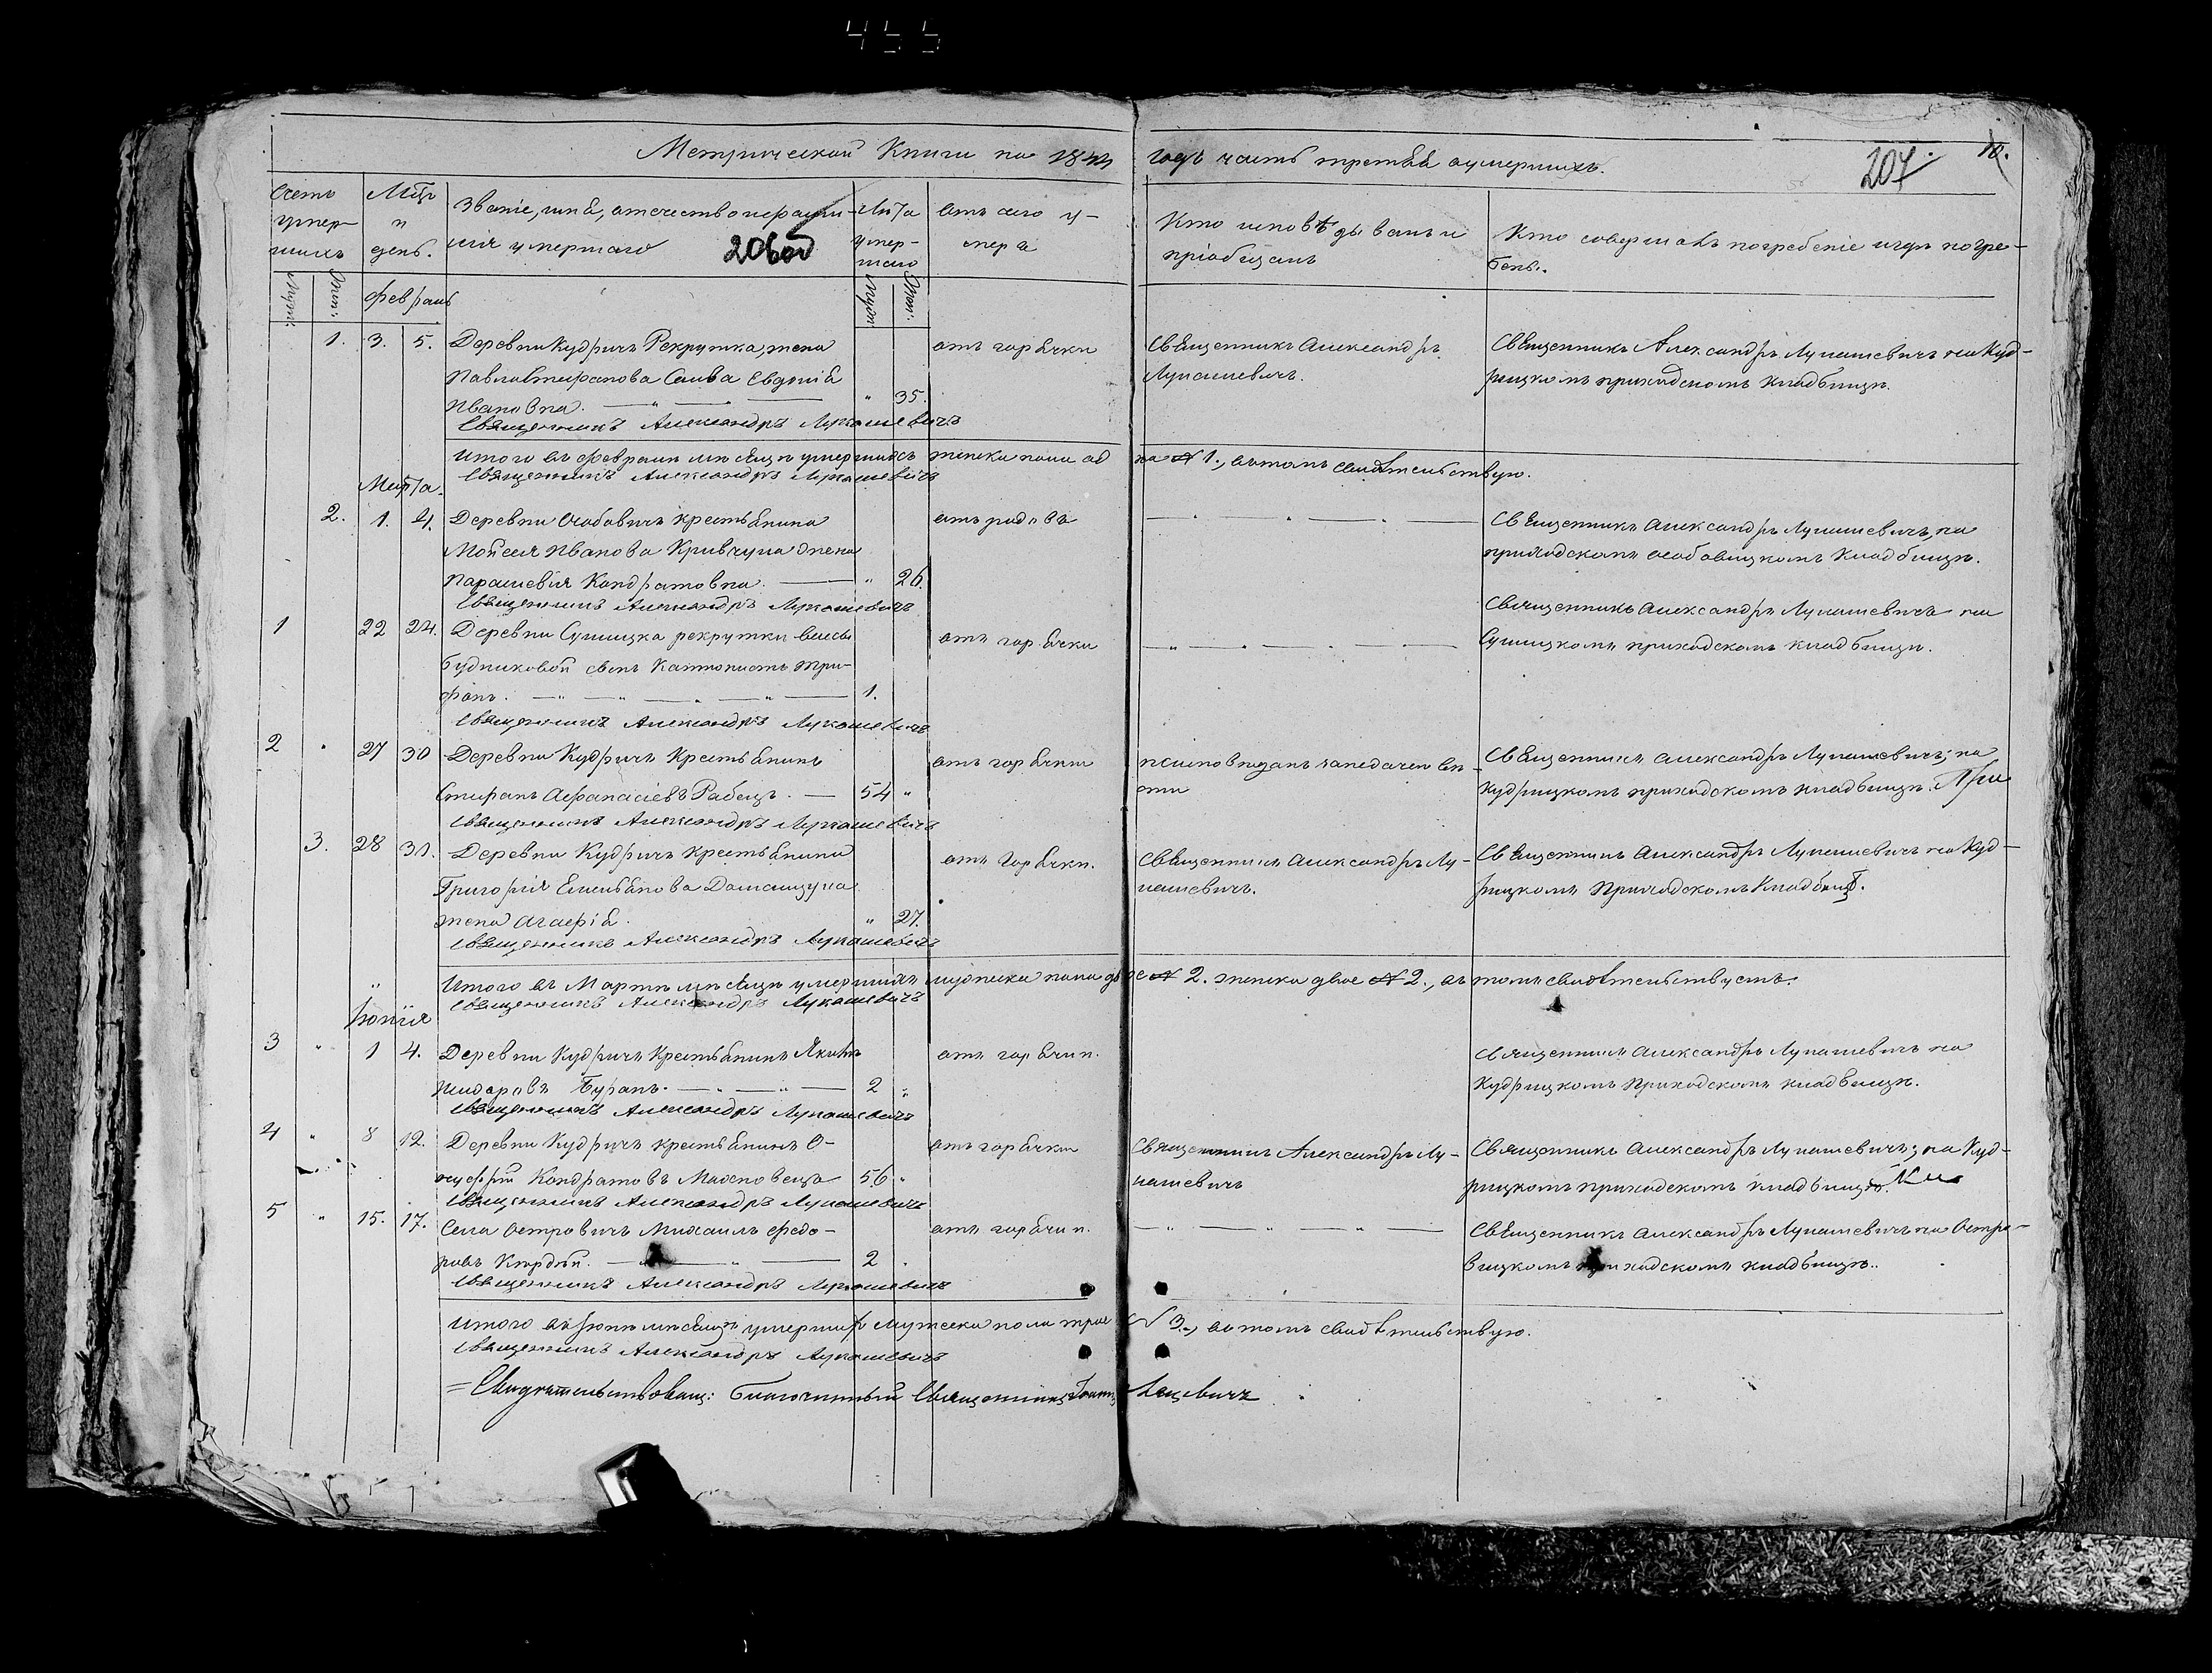 455
Метрической Книги на 1844 годъ часть третья о умершихъ.
207
10.
Счетъ умер-
шихъ
Мцъ
и
день.
Званіе, имя, отечество и фами-
лія умершаго
206 об
Лѣта
умер-
шаго
отъ чего у-
мерѣ
Кто исповѣдывалъ и
пріобщалъ
Кто совершалъ погребеніе и гдѣ погре-
бенъ.
Муж:
Жен:
Муж:
Жен:
Февраль
1. 3. 5. Деревни Кудричъ Рекрутка, жена отъ горячки Священникъ Александръ Священникъ Александръ Лукашевичъ на Куд-
Павла Стефанова Евдокія Лукашевичъ. рицкомъ приходскомъ кладбищѣ.
Ивановна. " 35.
Священникъ Александръ Лукашевичъ
Итого въ Февралѣ мѣсяцѣ умершихъ женска пола одна № 1., въ томъ свидѣтельствую.
Священникъ Александръ Лукашевичъ
Марта.
2. 1. 4. Деревни Особовичъ крестьянина отъ родовъ Священникъ Александръ Лукашевичъ, на
Мойсея Иванова Кривчука жена приходскомъ особовицкомъ кладбищѣ.
Парашевія Кондратовна. " 26.
Священникъ Александръ Лукашевичъ
1 22 24. Деревни Сушицка рекрутки отъ горячки Священникъ Александръ Лукашевичъ на
Будниковой сынъ Кантонистъ Три- Сушицкомъ приходскомъ кладбищѣ.
фонъ. 1.
Священникъ Александръ Лукашевичъ
2 27 30 Деревни Кудричъ Крестьянинъ отъ горячки Священникъ Александръ Лукашевичъ, на
Стефанъ Афанасіевъ Рабецъ. 54 " Кудрицкомъ приходскомъ кладбищѣ.
Священникъ Александръ Лукашевичъ
3. 28 31. Деревни Кудричъ крестьянина отъ Горячки. Священникъ Александръ Лу- Священникъ Александръ Лукашевичъ на Куд-
Григорія Емельянова кашевичъ. рицкомъ Приходскомъ Кладбищѣ.
жена Агафія. " 27.
Священникъ Александръ Лукашевичъ
Итого въ Мартѣ мѣсяцѣ умершихъ мужеска пола двое № 2. женска двое № 2., въ томъ свидѣтельствуетъ.
Священникъ Александръ Лукашевичъ
3 " 1 4. Деревни Кудричъ Крестьянинъ отъ горячки. Священникъ Александръ Лукашевичъ на
Буранъ. 2 " Кудрицкомъ Приходскомъ кладбищѣ.
Священникъ Александръ Лукашевичъ
4 " 8 12. Деревни Кудричъ крестьянинъ О- отъ горячки Священникъ Александръ Лу- Священникъ Александръ Лукашевичъ; на Куд-
нуфрій Кондратовъ 56 " кашевичъ рицкомъ приходскомъ кладбищѣ.
Священникъ Александръ Лукашевичъ
5 " 15. 17. Села Островичъ Михаилъ Федо- отъ горячки. Священникъ Александръ Лукашевичъ на Остро-
ровъ 2 вицкомъ приходскомъ кладбищѣ.
Священникъ Александръ Лукашевичъ
Итого въ мѣсяцѣ умершихъ мужеска пола трое № 3., въ томъ свидѣтельствую.
Священникъ Александръ Лукашевичъ
= Свидѣтельствовалъ: Благочинный Священникъ Іоаннъ